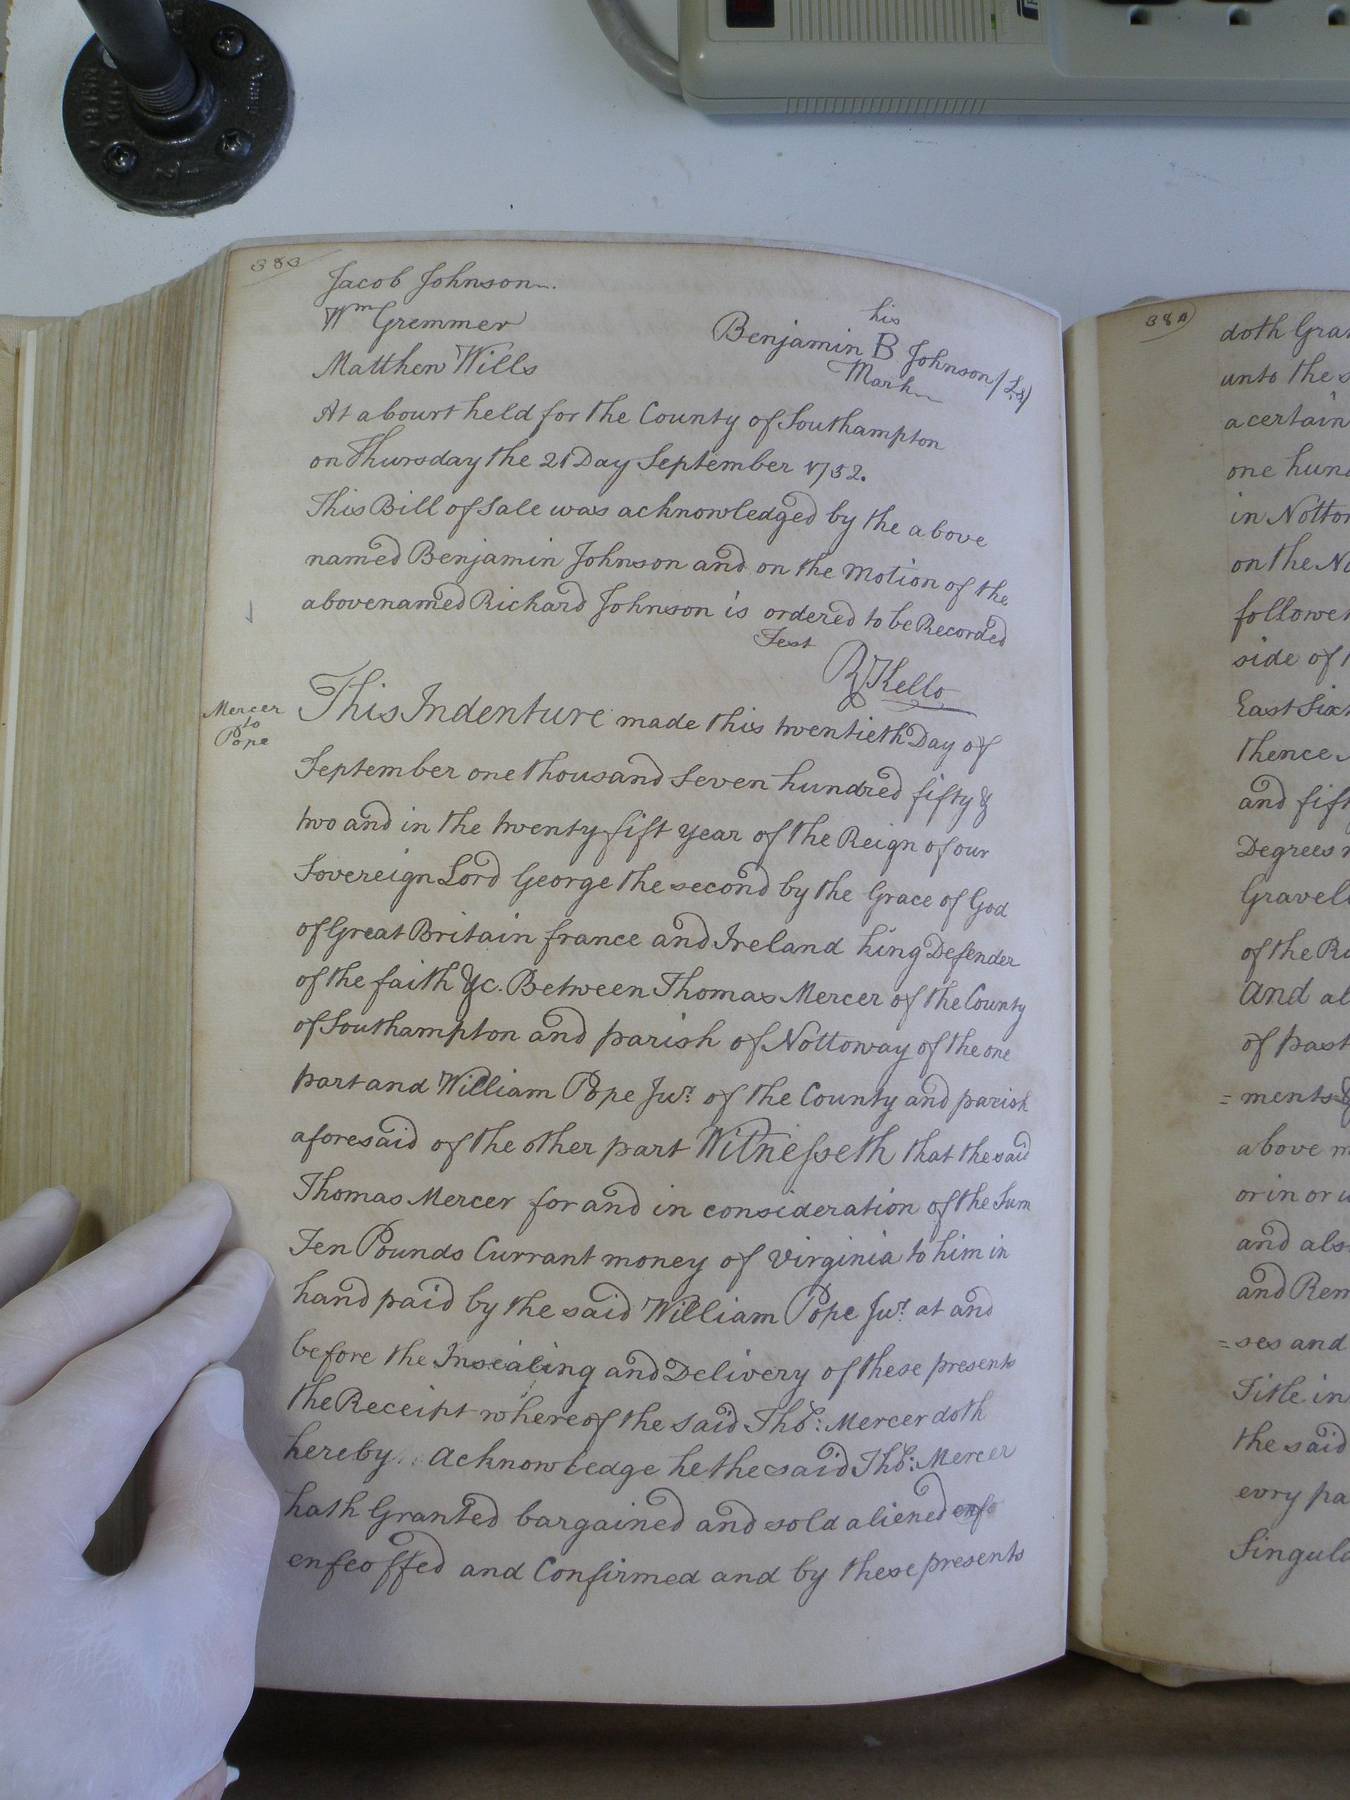 383
Jacob Johnson
Wm Gremmer
Matthew Wills
his
Benjamin B Johnson (Ls)
Mark
At a bourt held for the County of Southampton
on Thursday the 21 Day September 1752.
This Bill of Sale was acknowledged by the above
named Benjamin Johnson and on the Motion of the
abovenamed Richard Johnson is ordered to be Recorded
Test
R Kello
Mercer
to
Pope
This Indenture made this twentieth Day of
September one thousand Seven hundred fifty &
two and in the twenty fift year of the Reign of our
Sovereign Lord George the second by the Grace of God
of Great Britain france and Ireland king Defender
of the faith &c. Between Thomas Mercer of the County
of Southampton and parish of Nottoway of the one
part and William Pope Jur. of the County and parish
aforesaid of the other part Witnesseth that the said
Thomas Mercer for and in consideration of the Sum
Ten Pounds Currant money of Virginia to him in
hand paid by the said William Pope Jur. at and
before the Insealing and Delivery of these presents
the Receipt whereof the said Tho: Mercer doth
hereby Acknowledge he the said Tho: Mercer
hath Granted bargained and sold aliened enfe
enfeoffed and Confirmed and by these presents
384
doth Gra
unto the s
a certain
one hun
in Notto
on the No
follower
side of t
East Six
thence
and fift
Degrees
Gravel
of the R
And al
of past
= ments &
above m
or in or u
and als
and Rem
= ses and
Title in
the said
evry pa
Singul